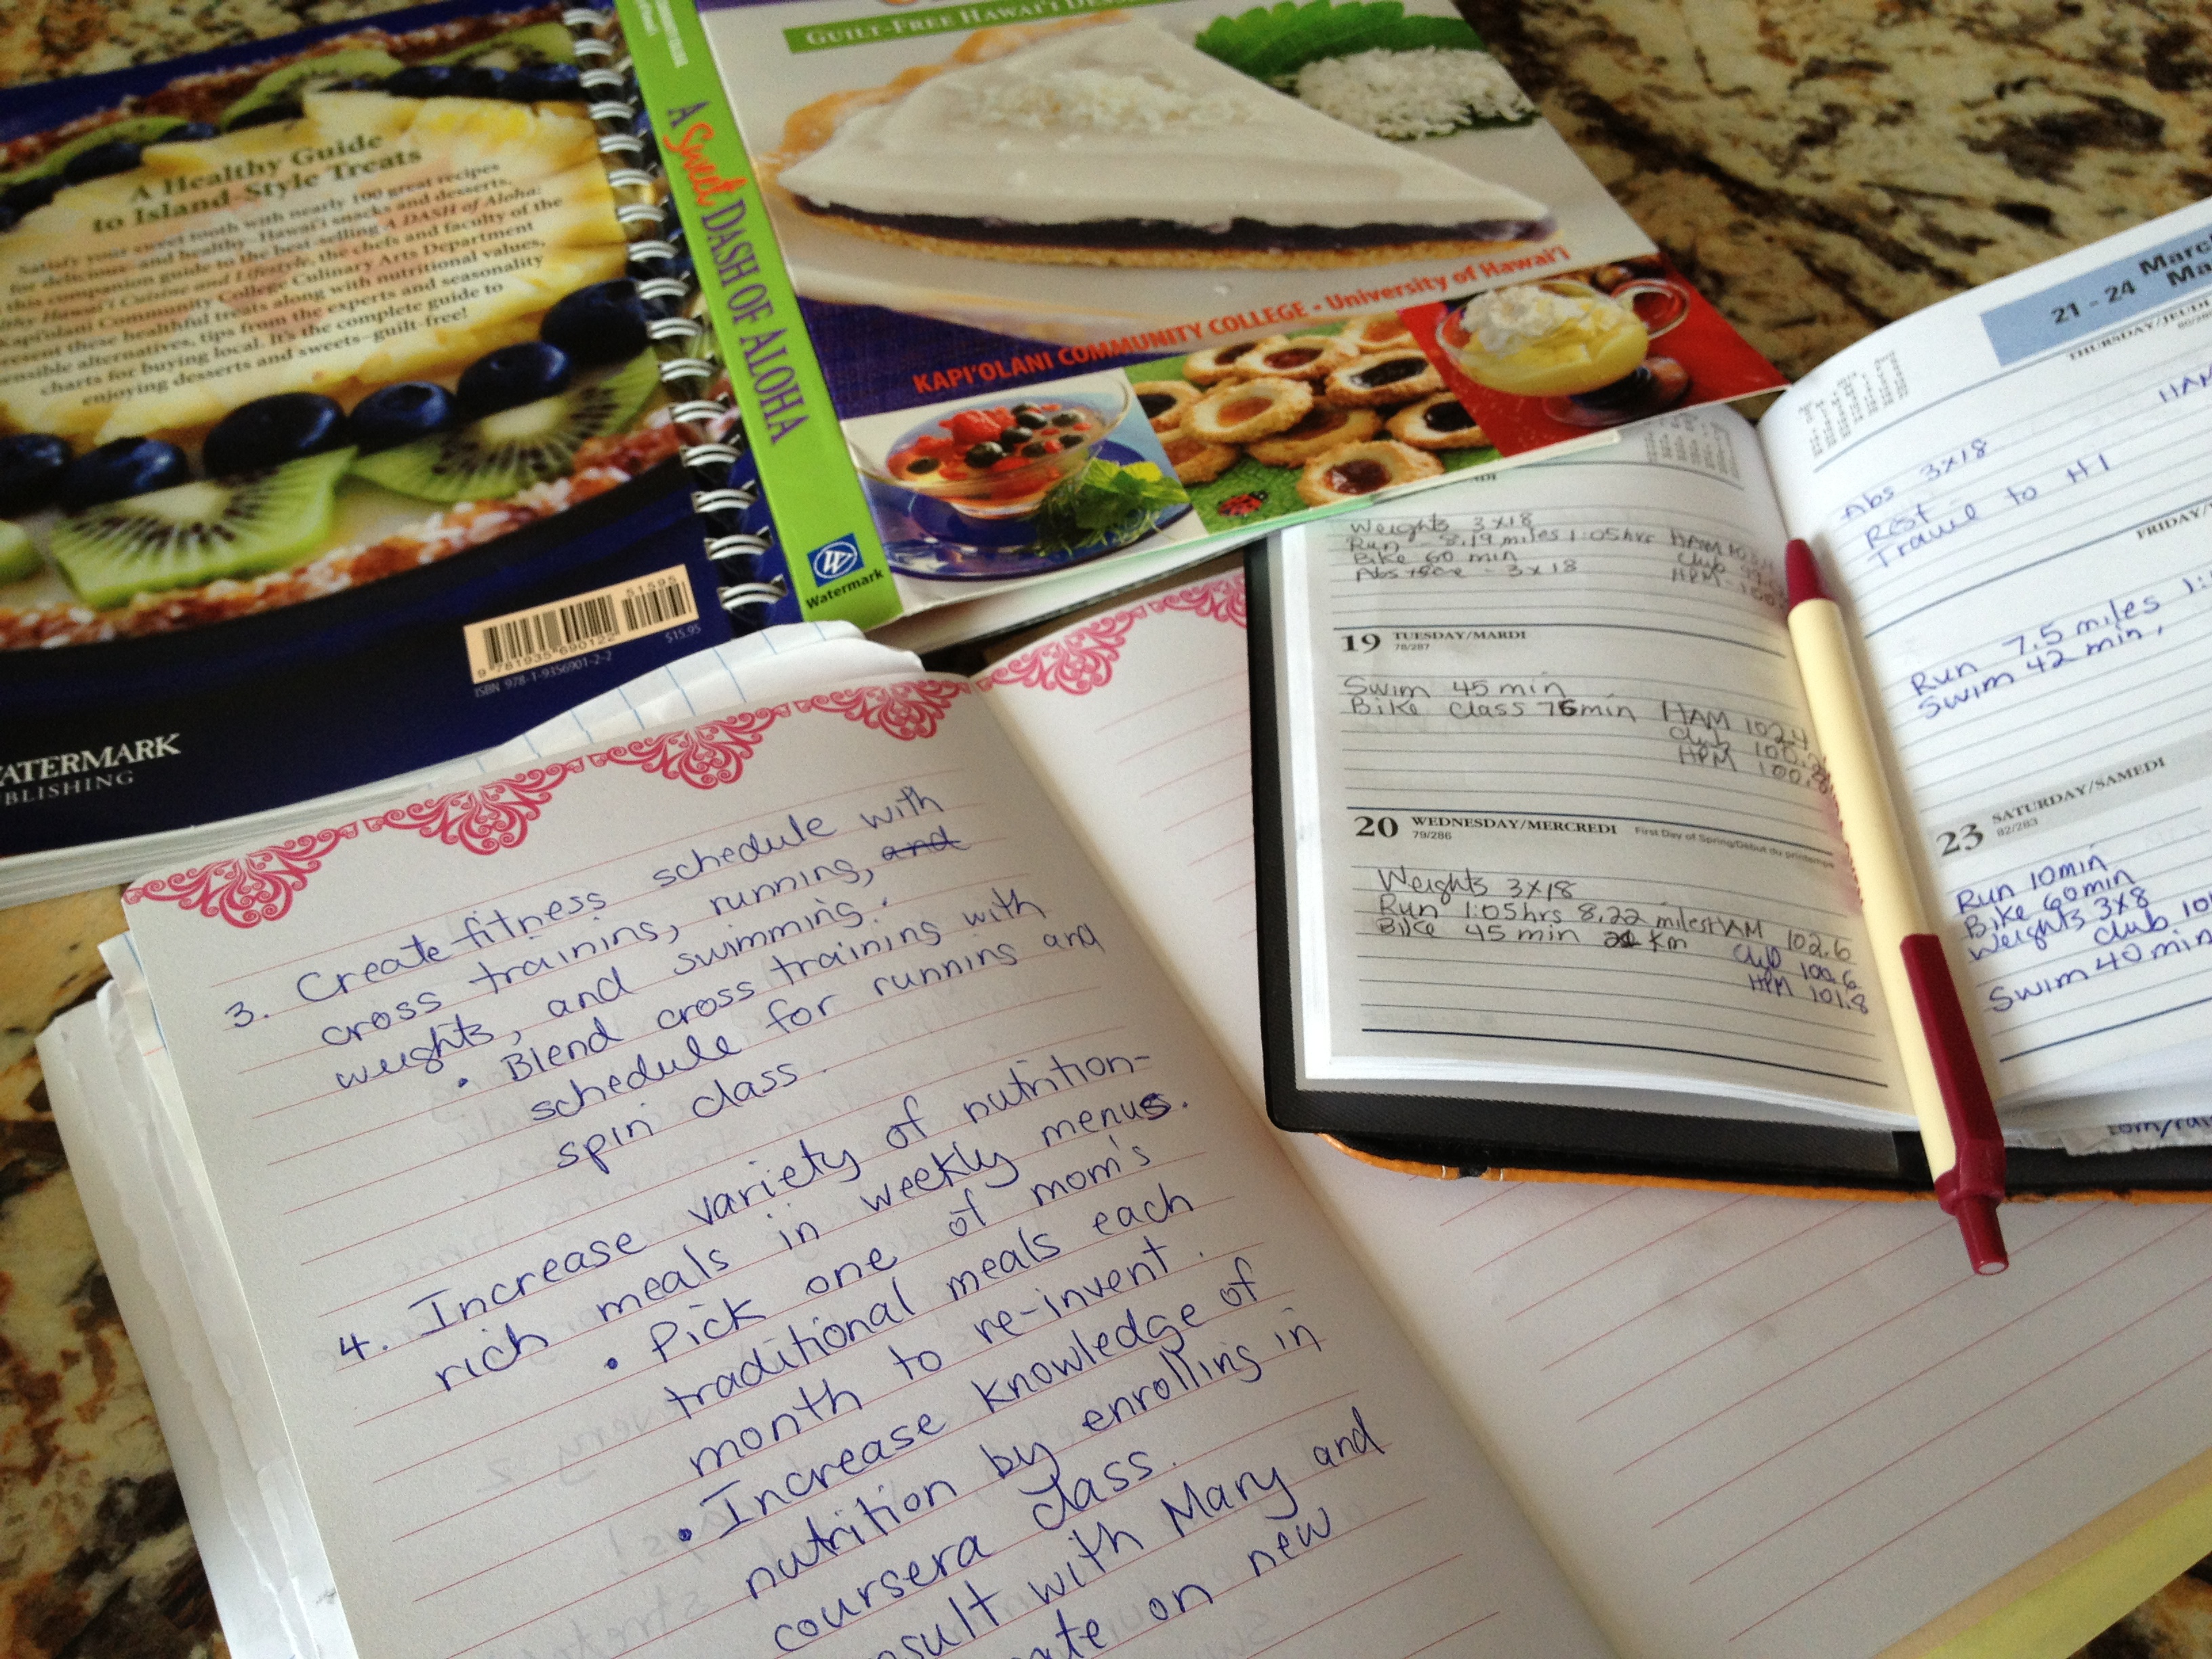 A Healthy Guide
to Island-Style Treats
Satisfy your sweet tooth with nearly 100 great recipes
for delicious—and healthy—Hawai'i snacks and desserts.
this companion guide to the best-selling A DASH of Aloha:
Healthy Hawai'i Cuisine and Lifestyle, the chefs and faculty of the
Kapi'olani Community College Culinary Arts Department
present these healthful treats along with nutritional values,
sensible alternatives, tips from the experts and seasonality
charts for buying local. It's the complete guide to
enjoying desserts and sweets—guilt-free!
51595
9 781935 690122
$15.95
ISBN 978-1-9356901-2-2
WATERMARK
PUBLISHING
A Sweet DASH OF ALOHA
W
Watermark
GUILT-FREE HAWAI'I
KAPI'OLANI COMMUNITY COLLEGE • University of Hawai'i
3. Create fitness schedule with
cross training, running, and
weights, and swimming.
• Blend cross training with
schedule for running and
spin class.
4. Increase variety of nutrition-
rich meals in weekly menus.
• Pick one of mom's
traditional meals each
month to re-invent.
• Increase knowledge of
nutrition by enrolling in
coursera class.
with Mary and
on new
Weights 3x18
Run - 8.19 miles 1:05hrs HAM
Bike 60 min Club
Abs 3x18 HPM
19 TUESDAY/MARDI
78/287
Swim 45 min
Bike class 75min HAM 102.4
Club
HPM 100.8
20 WEDNESDAY/MERCREDI First Day of Spring/Début du printemps
79/286
Weights 3x18
Run 1:05hrs 8.22 miles HAM 102.6
Bike 45 min Km Club 100.6
HPM 101.8
21 - 24 March
THURSDAY/JEUDI
HAM
Abs 3x18
Rest
Travel to HI
FRIDAY
Run 7.5 miles
Swim 42 min,
23 SATURDAY/SAMEDI
82/283
Run 10min
Bike 60min
Weights 3x8
Club
Swim 40 min